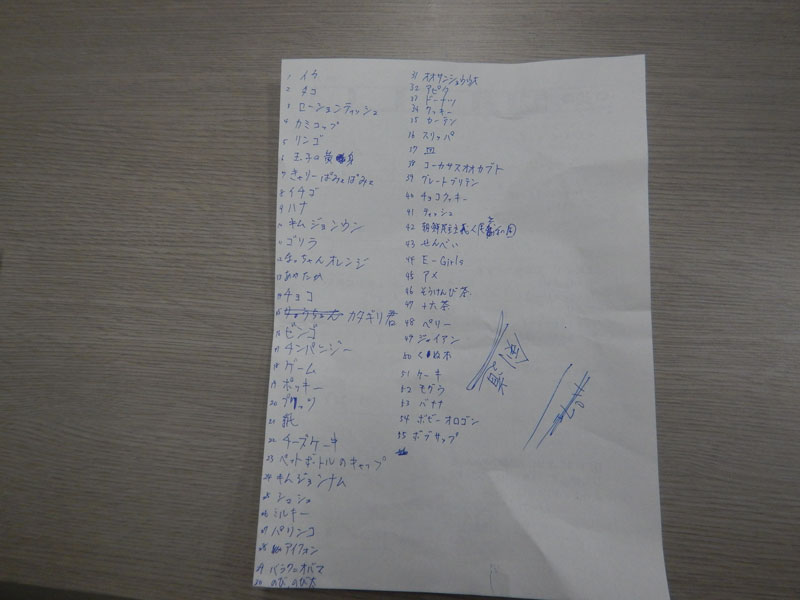 1 イカ
2 タコ
3 セーションティッシュ
4 カミコップ
5 リンゴ
6 玉子の黄身
7 きゃりーぱみゅぱみゅ
8 イチゴ
9 ハナ
10 キムジョンウン
11 ゴリラ
12 なっちゃんオレンジ
13 あかたか
14 チョコ
15 カタギリ君
16 ビンゴ
17 チンパンジー
18 ゲーム
19 ポッキー
20 プリッツ
21
22 チーズケーキ
23 ペットボトルのキャップ
24 キムジョンナム
25 シュシュ
26 ミルキー
27 パリンコ
28 アイフォン
29 バラクオバマ
30 のび のび太
31 オオサンショウウオ
32 アピタ
33 ドーナツ
34 クッキー
35 カーテン
36 スリッパ
37 皿
38 コーカサスオオカブト
39 グレートブリテン
40 チョコクッキー
41 ティッシュ
42 朝鮮民主主義人民共和国
43 せんべい
44 E-Girls
45 アメ
46 そうけんび茶
47 十六茶
48 ペリー
49 ジャイアン
50 くぬ木
51 ケーキ
52 モグラ
53 バナナ
54 ボビーオロゴン
55 ボブサップ